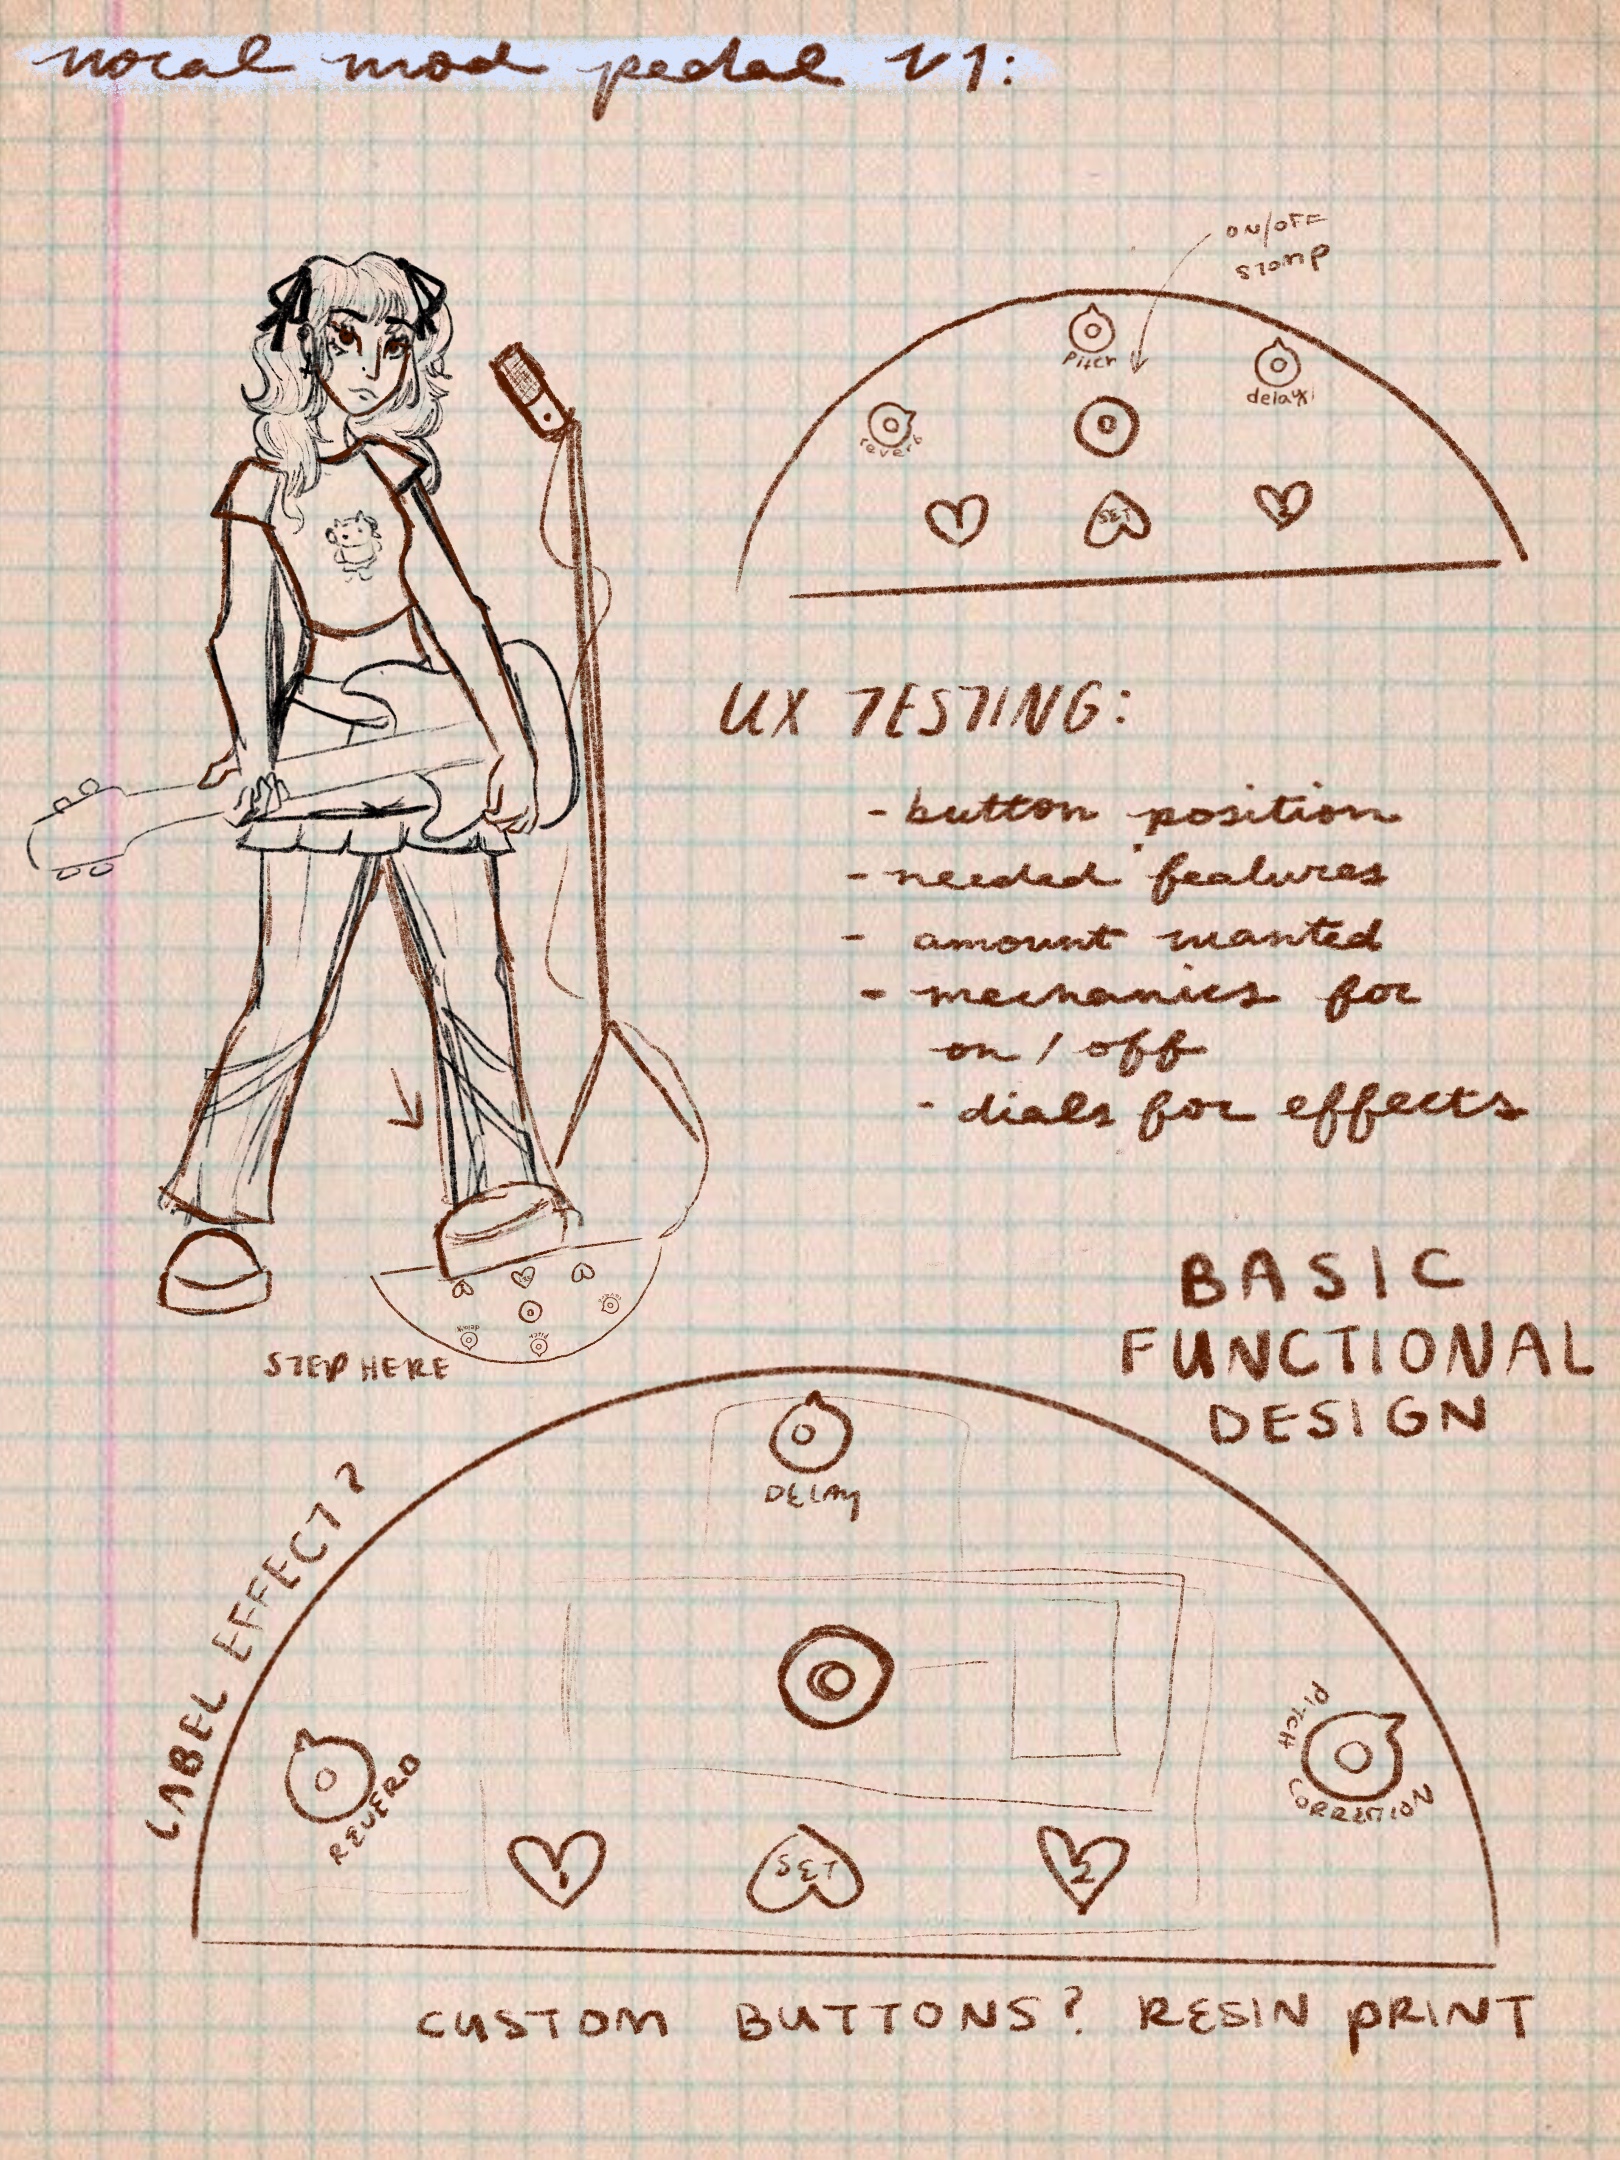 vocal mod pedal V1:
ON/OFF
STOMP
Pitch
delay
reverb
1
SET
2
UX TESTING:
- button position
- needed features
- amount wanted
- mechanics for
on / off
- dials for effects
STEP HERE
BASIC
FUNCTIONAL
DESIGN
LABEL EFFECT?
DELAY
REVERB
PITCH
CORRECTION
1
SET
2
CUSTOM BUTTONS? RESIN PRINT